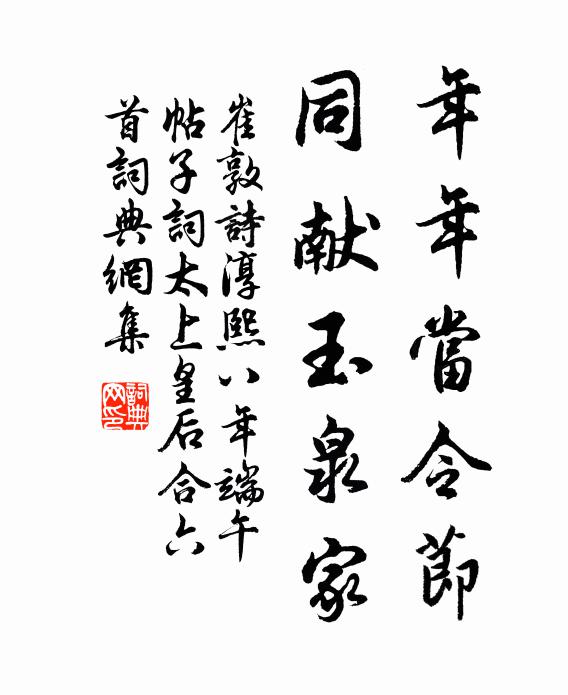 年年當令節
同献玉泉家
崔敦詩淳熙八年端午
帖子詞太上皇后合六
首詞典網集
詞典
网印